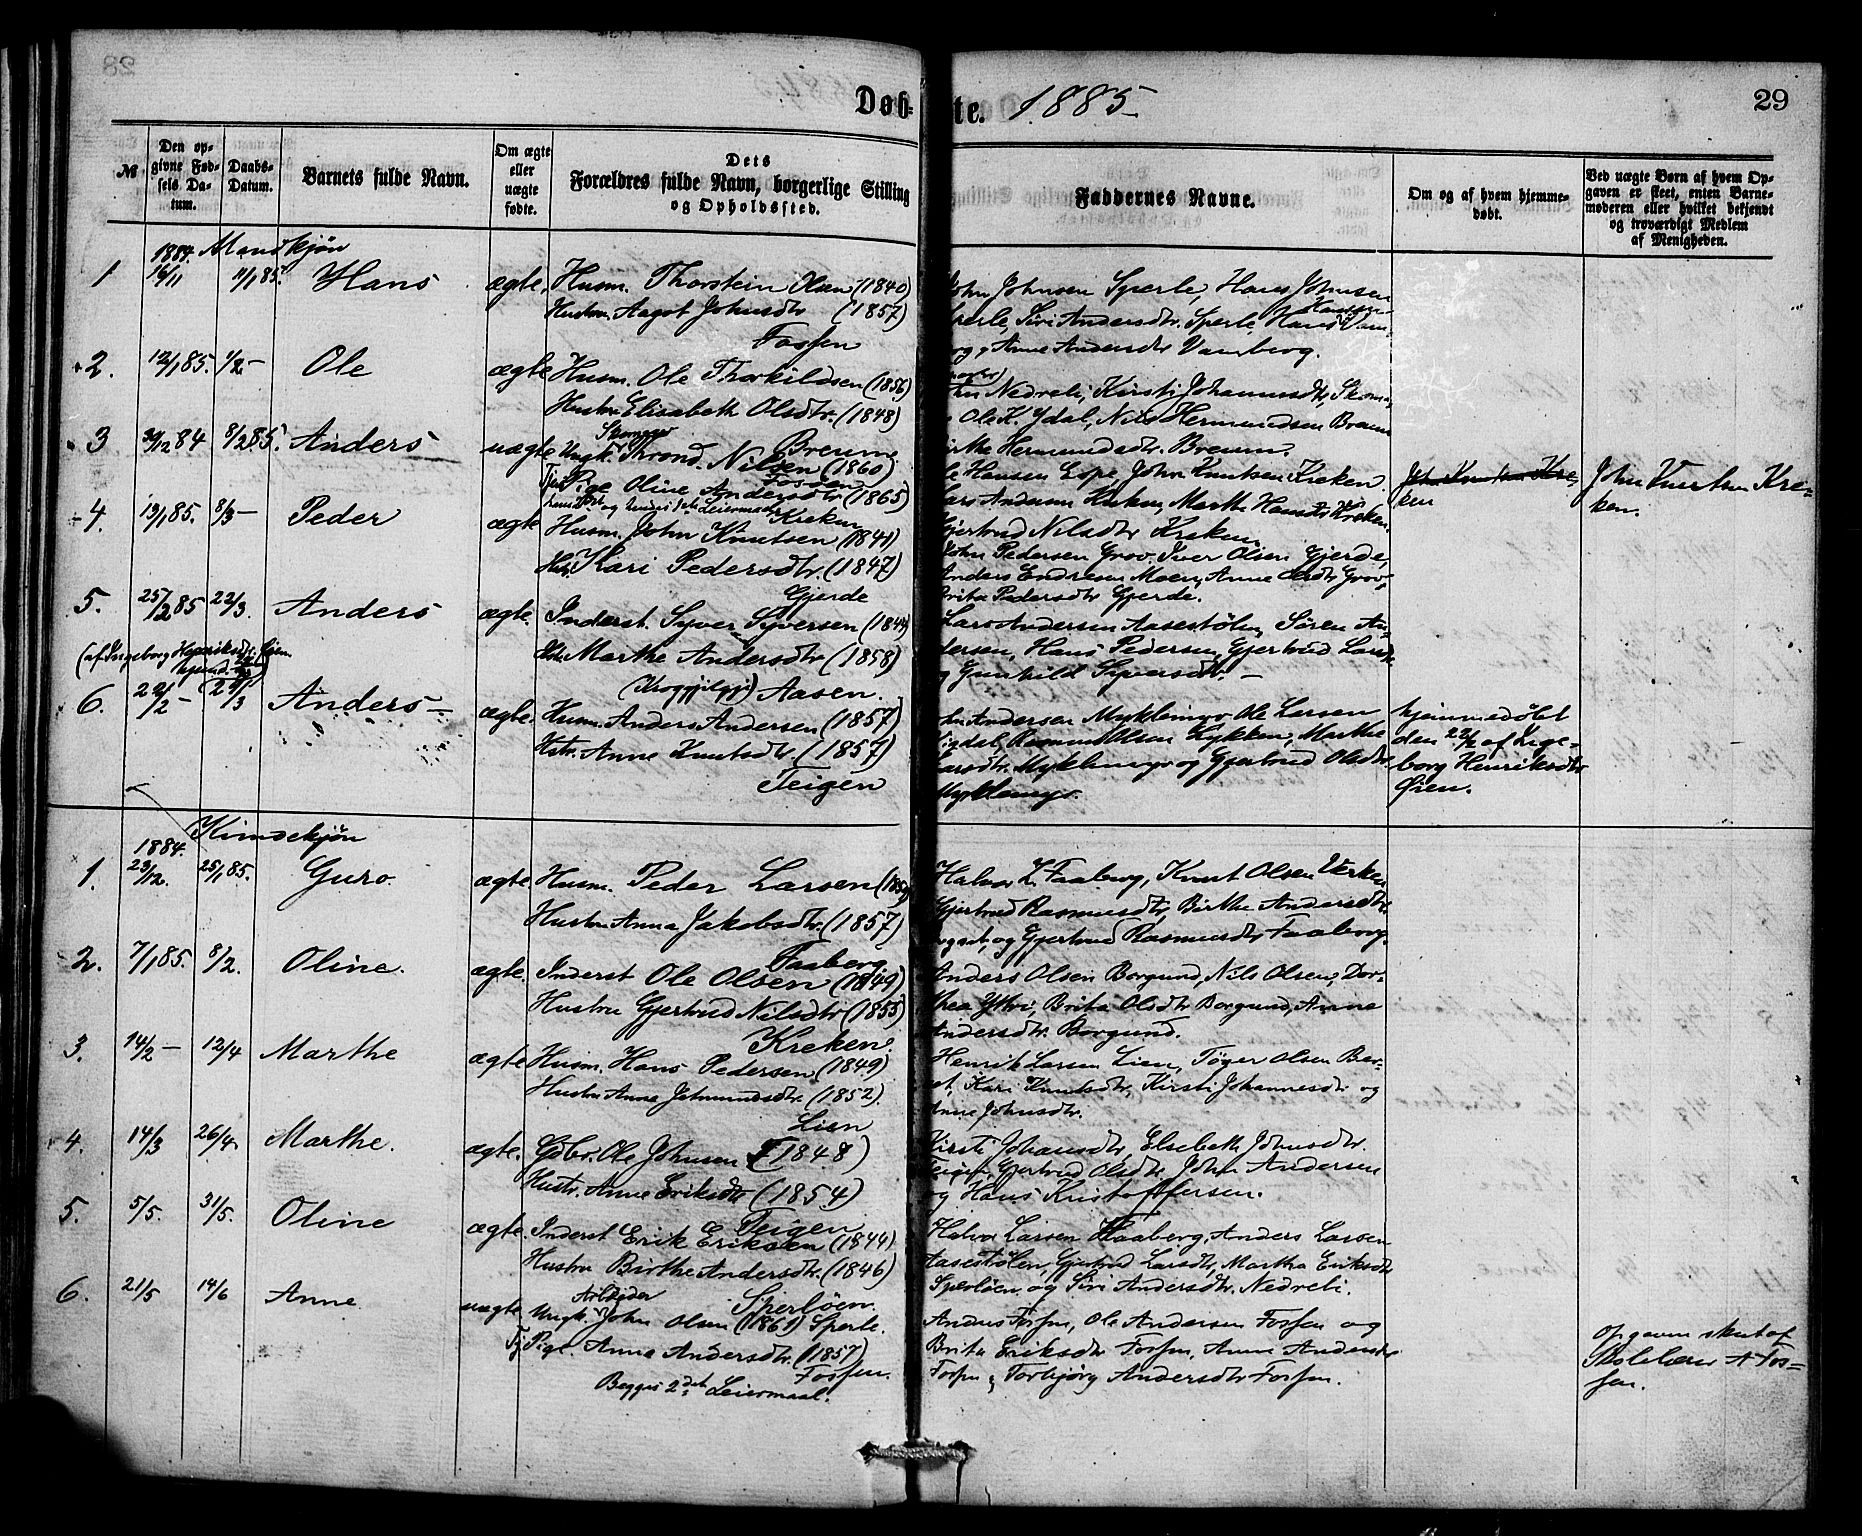 Døb-te. 1885.
29
№
Den opgivne Fødsels Datum.
Daabs-Datum.
Barnets fulde Navn.
Om ægte eller uægte fødte.
Dets Forældres fulde Navn, borgerlige Stilling og Opholdssted.
Faddernes Navne.
Om og af hvem hjemmedøbt.
Ved uægte Børn af hvem Opgaven er skeet, enten Barnemoderen eller hvilket bekjendt og troværdigt Medlem af Menigheden.
1884. Mandkjøn
1 16/11 11/1 85. Hans ægte. Husm. Thorstein Olsen (1840)
Hustru Aagot Johnsdtr (1857)
Fossen
John Johnsen Sperle, Hans Johnsen
Sperle, Siri Andersdtr. Sperle, Hans Hansen Vam-
berg, Anne Andersdtr Vamberg.
2. 12/1 85. 1/2 - Ole ægte Husm. Ole Thorkildsen (1856)
Hustru Elisabeth Olsdtr. (1848)
Breum
Nedreli, Kirsti Johannesdtr, Skoma-
Ole K. Ydal, Nils Hermundsen Breum
Birthe Hermundsdtr. Breum.
3 30/12 84 8/2 85. Anders uægte Ungk. Thronð Nilsen (1860)
Fossen
Tj. Pige Oline Andersdtr (1865)
Kreken
Ole Hansen Lope, John Knutsen Kreken.
Lars Andersen Kreken, Marthe Hansdtr Kreken,
Gjertrud Nilsdtr Kreken.
John Knutsen Kre-
ken
John Knutsen Kre-
ken.
4. 19/1 85. 8/3 - Peder ægte Husm. John Knutsen (1841)
Hustr. Kari Pedersdtr. (1847)
Gjerde
John Pedersen Grov. Iver Olsen Gjerde,
Anders Endresen Moen, Anne Olsdtr Grov,
Brita Pedersdtr Gjerde.
5. 25/2 85 22/3. Anders ægte. Inderst. Syver Syversen (1844)
Hstr. Marthe Andersdtr. (1858)
Aasen.
Lars Andersen Aasestølen, Søren An-
dersen, Hans Pedersen, Gjertrud Larsdtr
og Gunhild Syversdtr. -
(af Ingeborg Henriksdtr. Øien
6. 22/2 - 29/3 Anders - ægte. Husm. Anders Andersen (1857)
Hstr. Anne Knutsdtr. (1857)
Teigen
Andersen Myklemyr, Ole Larsen
Rasmus Olsen Lykken, Marthe
Larsdtr. Myklemyr og Gjertrud Olsdtr
Myklemyr.
hjemmedøbt
den 22/2 af Inge-
borg Henriksdtr
Øien.
1884. Kvindekjøn
1. 23/12. 25/1 85. Guro. ægte Husm. Peder Larsen
Hustru Anna Jakobsdtr. (1857)
Faaberg
Halvor L. Faaberg, Knut Olsen Verken
Gjertrud Rasmusdtr, Birthe Andersdtr
og Gjertrud Rasmusdtr Faaberg.
2. 7/1 85. 8/2. Oline. ægte. Inderst Ole Olsen (1849)
Hustru Gjertrud Nilsdtr (1855)
Kreken.
Anders Olsen Borgund, Nils Olsen, Dor-
thea Ytri, Brita Olsdtr Borgund, Anne
Andersdtr. Borgund.
3. 14/2 - 12/4 Marthe ægte Husm. Hans Pedersen (1849)
Hustru Anne Jetmundsdtr (1852)
Lien
Henrik Larsen Lien, Tøger Olsen
Kari Knutsdtr, Kirsti Johannesdtr og
Anne Johnsdtr.
4. 14/3 26/4. Marthe. ægte. Gdbr. Ole Johnsen (1848)
Hustr. Anne Eriksdtr (1854)
Teigen
Kirsti Johansdtr, Elsebeth Johnsdtr.
Teigen, Gjertrud Olsdtr, John Andersen
og Hans Kristoffersen.
5. 5/5. 31/5. Oline ægte. Inderst Erik Eriksen (1844)
Hustru Birthe Andersdtr. (1846)
Sperløen.
Halvor Larsen Faaberg, Anders Larsen
Aasestølen, Gjertrud Larsdtr, Martha Eriksdtr
Sperløen og Siri Andersdtr. Nedreli.
6. 21/5 14/6 Anne uægte Arbeider
Ungk. John Olsen (1861) Sperle.
Tj. Pige. Anna Andersdtr. (1857)
Fossen.
Begges 2det Leiermaal.
Anders Fossen, Ole Andersen Fossen og
Brita Eriksdtr Fossen, Anne Andersdtr
Fossen & Torbjørg Andersdtr Fossen.
Opgaven skeet af
Skolelærer A Fos-
sen.